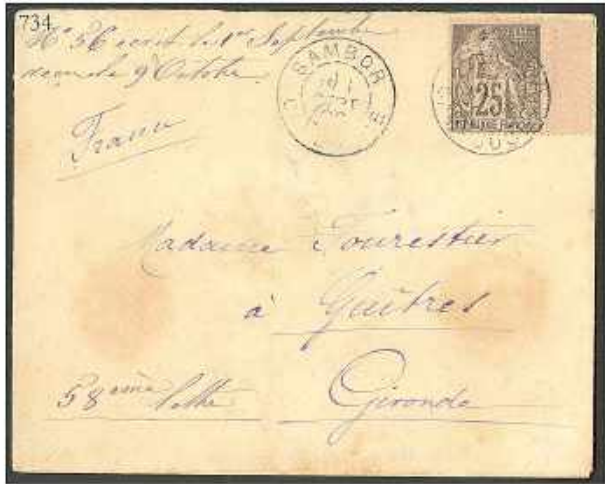 734
Nº 56 écrit le 1er Septembre
reçu le 9 Octobre
SAMBOR
25
France
Madame Fourestier
à Guîtres
58 ème lettre Gironde